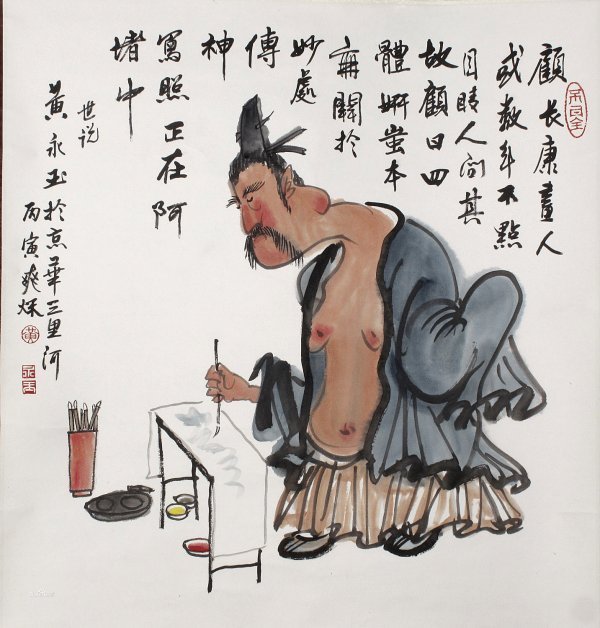 顧长康畫人
或数年不點
目睛人问其
故顧曰四
體妍蚩本
無關於
妙處
傳
神
寫照正在阿
堵中
世说
黄永玉於京華三里河
丙寅爽秌
黄
永玉